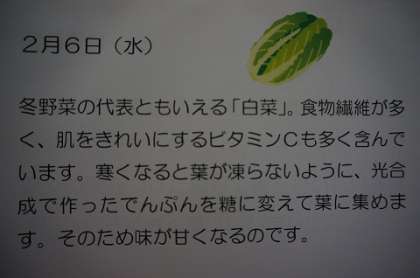 2月6日(水)
冬野菜の代表ともいえる「白菜」。食物繊維が多
く、肌をきれいにするビタミンCも多く含んで
います。寒くなると葉が凍らないように、光合
成で作ったでんぷんを糖に変えて葉に集めま
す。そのため味が甘くなるのです。